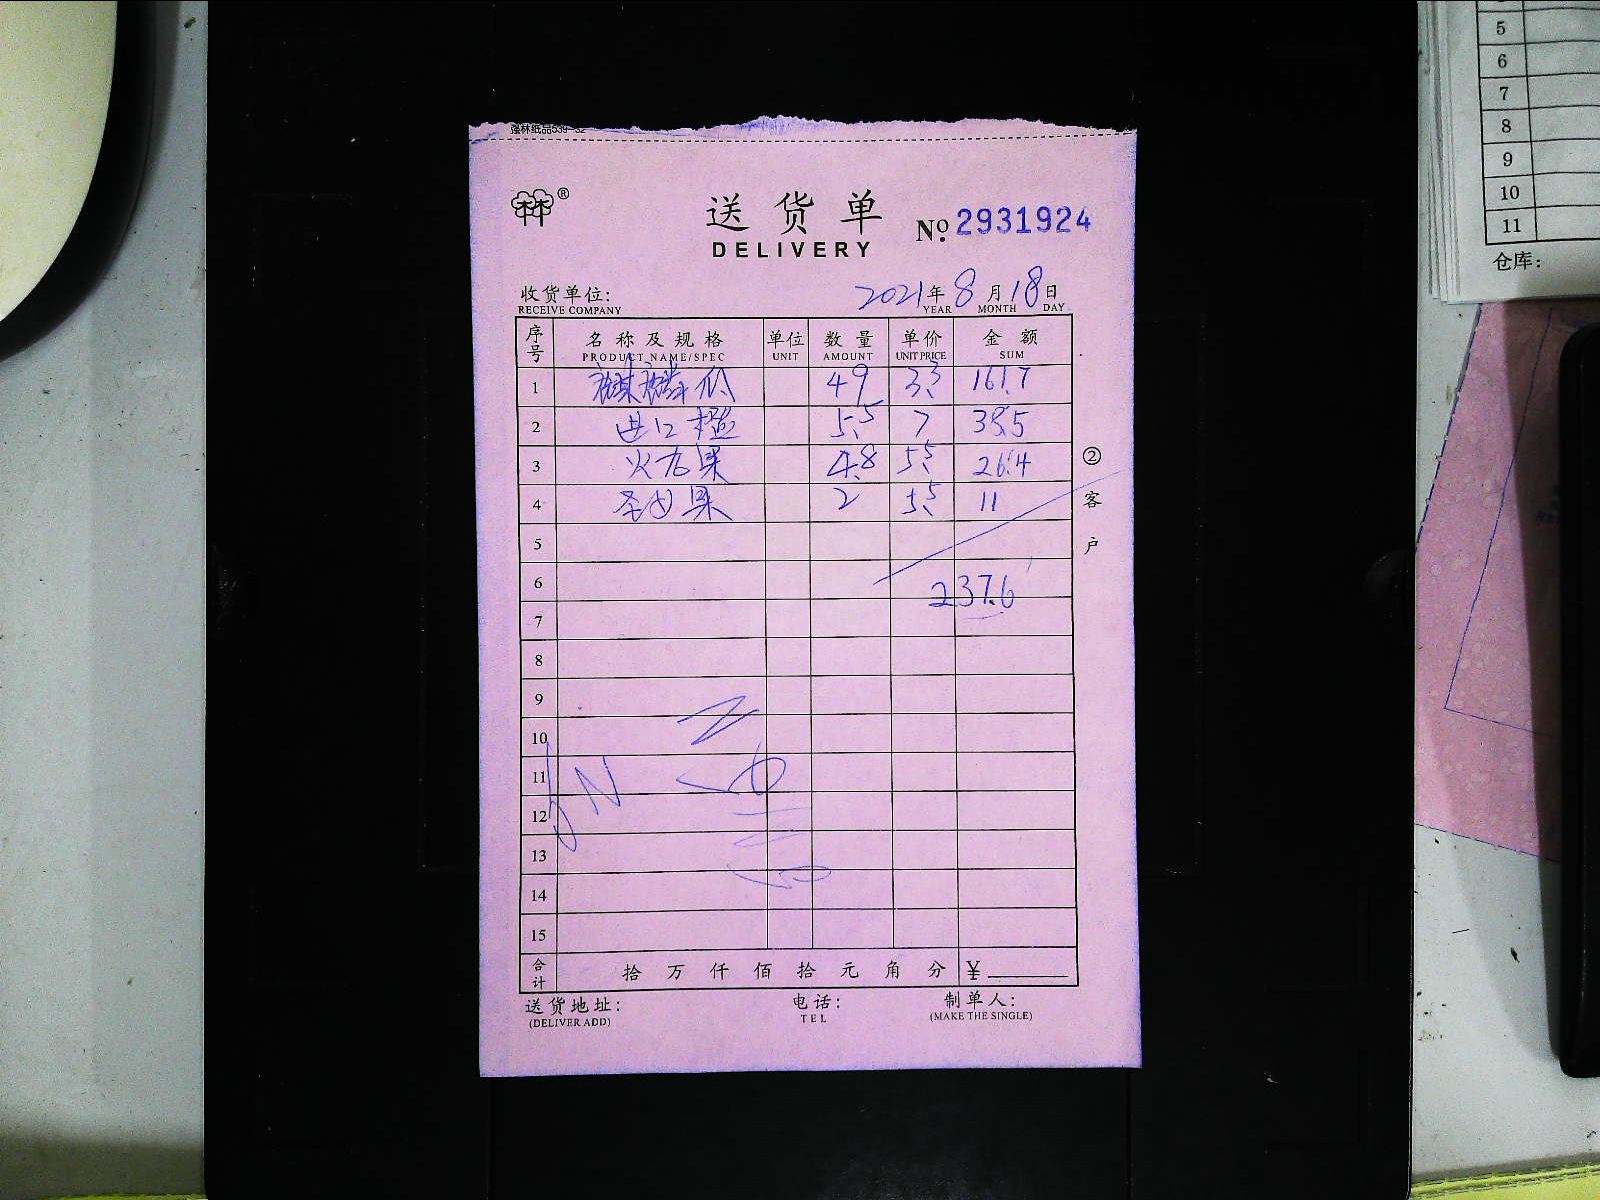 强林纸品539-32
®
送货单
DELIVERY
No. 2931924
收货单位:
RECEIVE COMPANY
2021年8月18日
YEAR MONTH DAY
序号 名称及规格 单位 数量 单价 金额
PRODUCT NAME/SPEC UNIT AMOUNT UNIT PRICE SUM
1 麒麟瓜 49 3.3 161.7
2 进口橙 5.5 7 38.5
3 火龙果 4.8 5.5 26.4
4 圣女果 2 5.5 11
5
6 237.6
7
8
9
10
11
12
13
14
15
合计 拾万仟佰拾元角分 ¥
送货地址: 电话: 制单人:
(DELIVER ADD) TEL (MAKE THE SINGLE)
②客户
5
6
7
8
9
10
11
仓库: